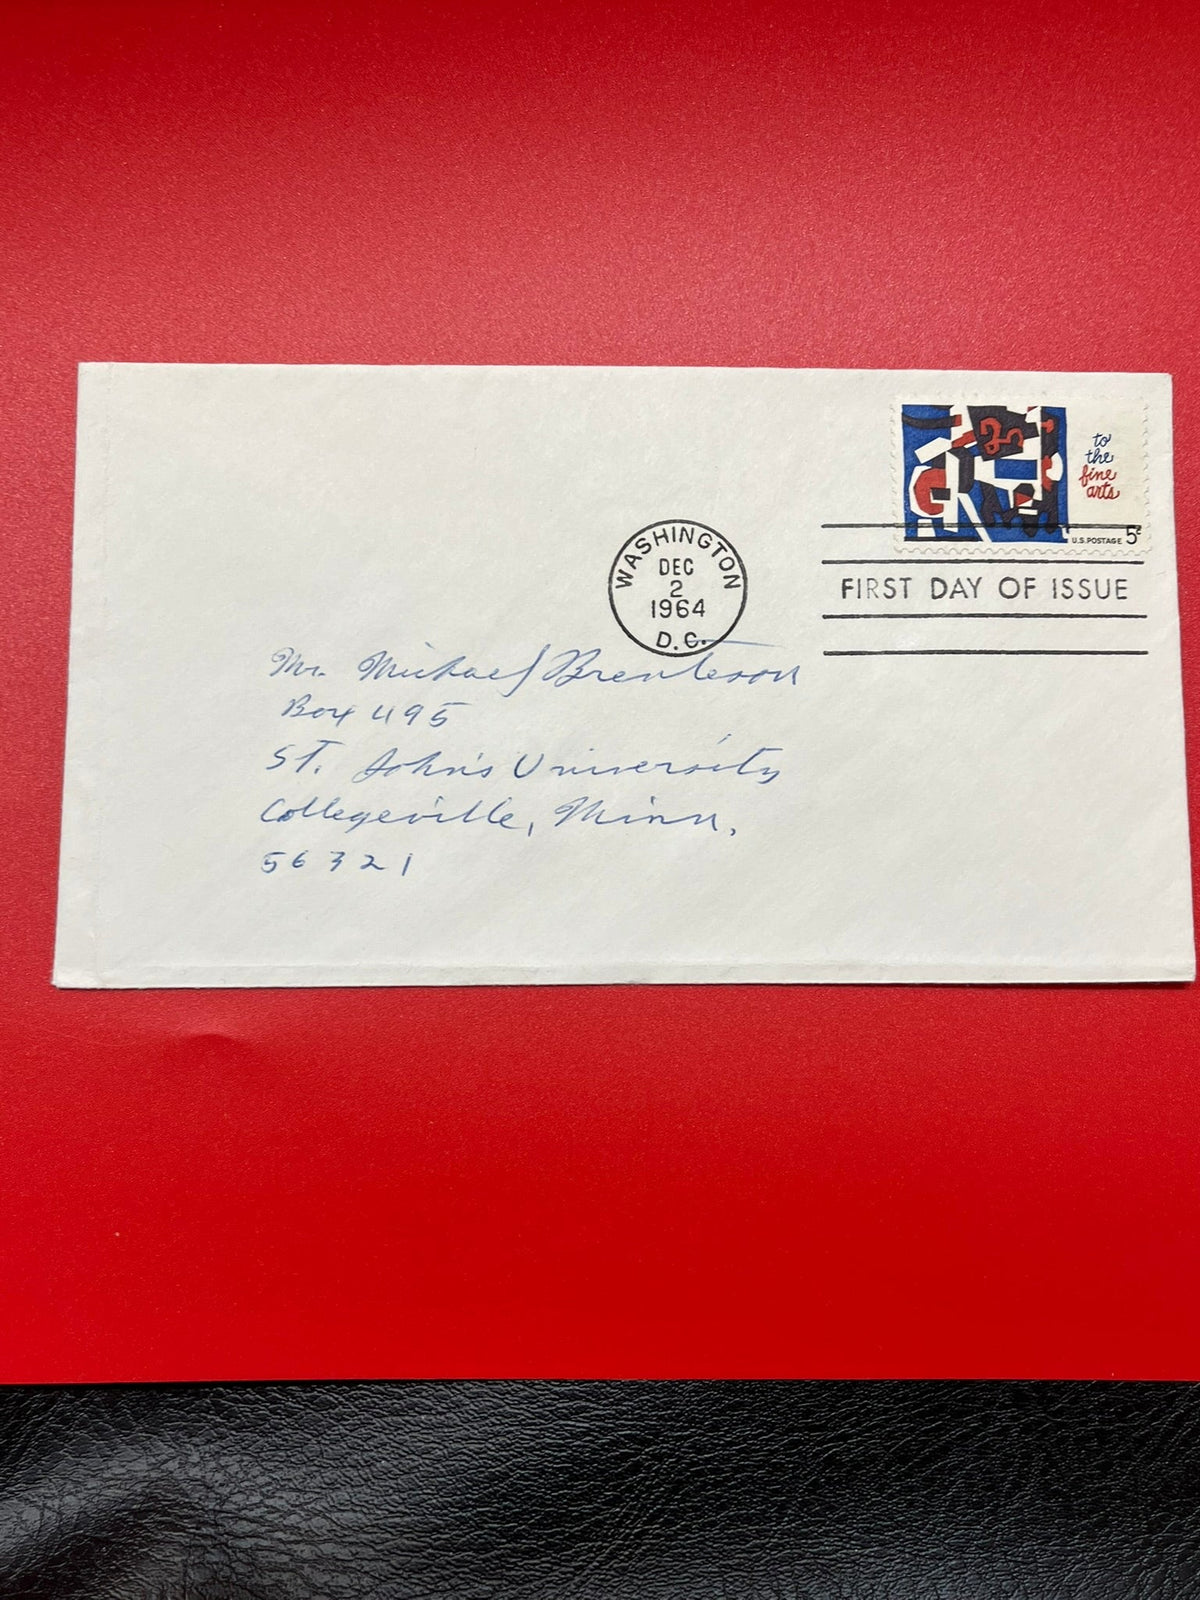 to
the
fine
arts
U.S. POSTAGE 5c
WASHINGTON
DEC
2
1964
D.C.
FIRST DAY OF ISSUE
Mr. Michael Brenteson
Box 495
St. John's University
Collegeville, Minn.
56321